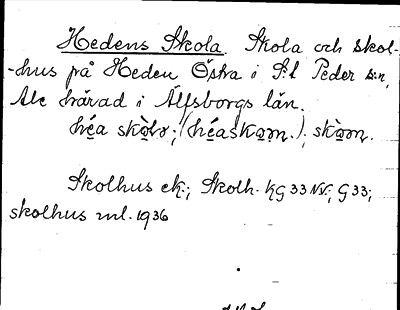 Hedens Skola. Skola och skol-
-hus på Heden Östra i S:t Peder s:n,
Ale härad i Älfsborgs län.
Skolhus ek.; Skolh. KG 33 NV; G 33;
skolhus ml. 1936